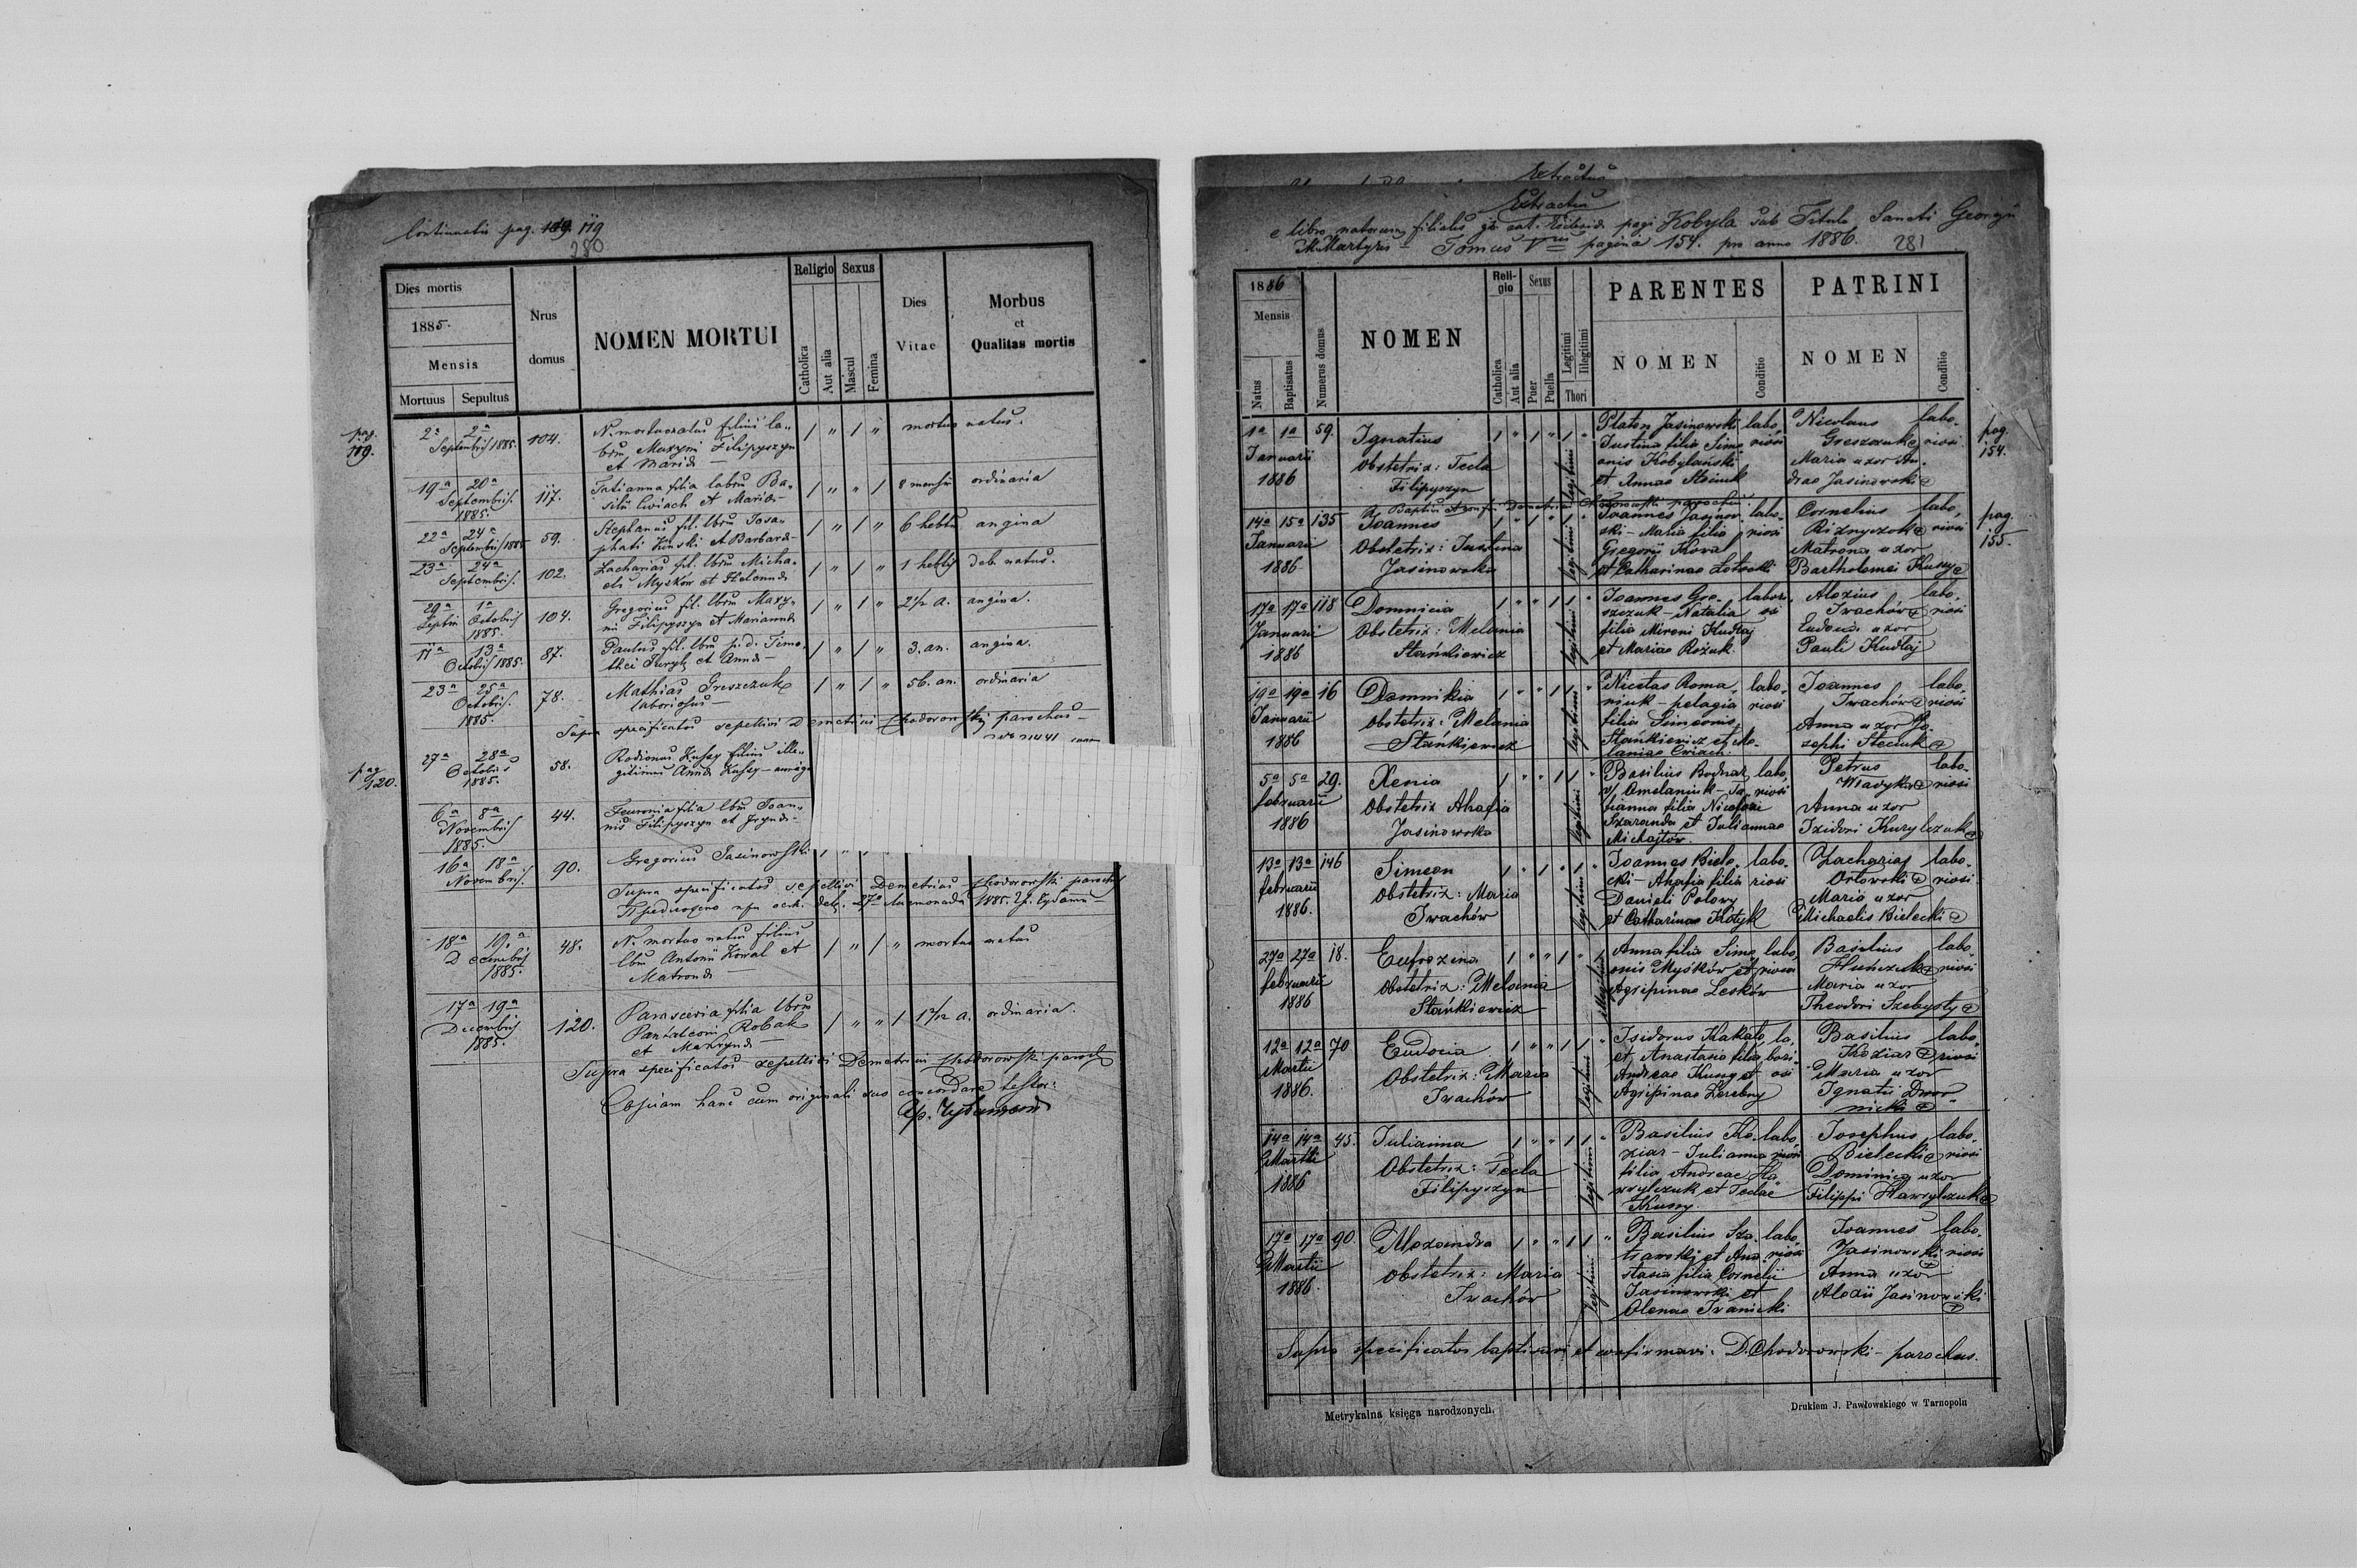 Continuatio pag. 119
280
Dies mortis
1885.
Mensis
Mortuus Sepultus
Nrus domus
NOMEN MORTUI
Religio Sexus
Catholica Aut alia Mascul Femina
Dies Vitae
Morbus
et
Qualitas mortis
pag. 119.
2a 2a Septembris 1885. 104. N. mortuo natus filius la-
boru Maxymi Filipyszyn
et Maria 1 " 1 " mortuo natus.
19a 20a Septembris. 1885. 117. Tatianna filia laboru Ba-
silii Cwiach et Maria 1 " " 1 8 mensiu ordinaria
22a 24a Septembris 1885 59. Stephanus fil. lbru Josa-
phati et Barbara 1 " 1 " 6 hebtu angina
23a 24a Septembris. 102. Zacharias fil. lbru Micha-
elis Myskow et Helenna 1 " 1 " 1 hebtis deb. natus.
29a Septm 1a Octobris 1885. 104. Gregorius fil. lbru Maxy-
mi Filipyszyn et Marianna 1 " 1 " 2 1/2 a. angina.
11a 13a Octobris 1885. 87. Paulus fil. lbru p.d. Timo-
thei et Anna 1 " 1 " 3. an. angina.
23a 25a Octobris. 1885. 78. Mathias Greszczuk
laboriosus 1 " 1 " 56. an. ordinaria
Supra specificatos sepelivi Demetrius Chodorowski parochus
pag 120.
27a 28a Octobris 1885. 58. Rodionus Kussy filius ille-
gitimus Anna Kussy
6a 8a Novembris 1885. 44. Fevronia filia lbru Joan-
nis Filipyszyn et Iryna
16a 18a Novembris. 90. Gregorius Jasinowski
Supra specificatos sepelivi Demetrius Chodorowski parochus
18a 19a Decembris 1885. 48. N. mortuo natus filius
lbru Antonii Kowal et
Matrona 1 " 1 " mortuo natus
17a 19a Decembris 1885. 120. Parascevia filia lbru
Pantaleoni Robak
et Matryna 1 " " 1 ordinaria.
Supra specificatos sepelivi Demetrius Chodorowski paroch
Copiam hanc cum originali suo concordare testor:
Extractus
Extractus
e libro natorum filialis gr. cat. pagi Kobyla sub Titulo Sancti Georgii
M. Martyris - Tomus V pagina 154. pro anno 1886. 281
1886
Mensis
Natus Baptisatus
Numerus domus
NOMEN
Religio
Catholica Aut alia
Sexus
Puer Puella
Legitimi Illegitimi
Thori
PARENTES
NOMEN Conditio
PATRINI
NOMEN Conditio
pag. 154.
1a 1a Januarii 1886 59. Ignatius
Obstetrix: Tecla
Filipyszyn
1 " 1 " 1 " legitimi
Platon Jasinowski labo-
Justina filia Sime- riosi
onis Kobylański
et Annae Steciuk
Nicolaus labo-
Greszczuk riosi
Maria uxor An-
drae Jasinowski
Demetrius Chodorowski parochus
pag. 155.
14a 15a Januarii 1886 135 Joannes
Obstetrix: Justina
Jasinowska
legitimi
Joannes Jasinow- labo-
ski - Maria filia riosi
Gregorii Kowa
et Catharinae
Cornelius labo-
Riznyczok riosi
Matrona uxor
Bartholomei Kussy
17a 17a Januarii 1886 118 Domnicia
Obstetrix: Melania
Stańkiewicz
1 " " 1 1 " legitimi
Joannes Gre- labori-
szczuk - Natalia osi
filia Mironi Kudłaj
et Mariae Rożuk
Alexius labo-
Iwachów riosi
Eudocia uxor
Pauli Kudłaj
19a 19a Januarii 1886 16 Domnikia
Obstetrix: Melania
Stańkiewicz
1 " " 1 1 " legitimi
Nicetas Roma- labo-
niuk - pelagia riosi
filia Simeonis
Stańkiewicz et Me-
laniae Cwiach.
Joannes labo-
Iwachów riosi
Anna uxor Jo-
sephi Steciuk
5a 5a februarii 1886 29. Xenia
Obstetrix Ahafia
Jasinowska
1 " " 1 1 " legitimi
Basilius Bodnar labo-
v/ Omelaniuk - Ta- riosi
tianna filia Nicolai
Szaranda et Juliannae
Michajłów.
Petrus labo-
Władyka riosi
Anna uxor
Isidori Kurylczuk
13a 13a februarii 1886. 146 Simeon
Obstetrix: Maria
Iwachów
1 " 1 " 1 " legitimi
Joannes Biele- labo-
cki - Ahafia filia riosi
Danieli Polowy
et Catharinae Kotyk
Zacharias labo-
Orłowski riosi
Maria uxor
Michaelis Bielecki
27a 27a februarii 1886 18. Eufrozina
Obstetrix: Melania
Stańkiewicz
1 " " 1 " 1 illegitimi
Anna filia Sime- labo-
onis Myśków et riosa
Agripinae Lesków
Basilius labo-
riosi
Maria uxor
Theodori Szebysty
12a 12a Martii 1886. 70 Eudocia
Obstetrix: Maria
Iwachów
1 " " 1 1 " legitimi
Isidorus Kakało la-
et Anastasia filia bori-
Andreae Kussy et osi
Agripinae Zerebny
Basilius labo-
Koziar riosi
Maria uxor
Ignatii Dwor-
nicki
14a 14a Martii 1886 45. Julianna
Obstetrix: Tecla
Filipyszyn
1 " " 1 1 " legitimi
Basilius Ko- labo-
ziar - Julianna riosi
filia Andreae Ha-
wrylczuk et Teclae
Kussy.
Josephus labo-
Bielecki riosi
Dominica uxor
Filippi Hawrylczuk
17a 17a Martii 1886. 90. Alexandra
Obstetrix: Maria
Iwachów
1 " " 1 1 " legitimi
Basilius Sza- labo-
trawski et Ana- riosi
stasia filia Cornelii
Jasinowski et
Olenae Iwanicki
Joannes labo-
Jasinowski riosi
Anna uxor
Alexii Jasinowski
Supra specificatos baptisavi et confirmavi: D. Chodorowski - parochus.
Metrykalna księga narodzonych.
Drukiem J. Pawłowskiego w Tarnopolu